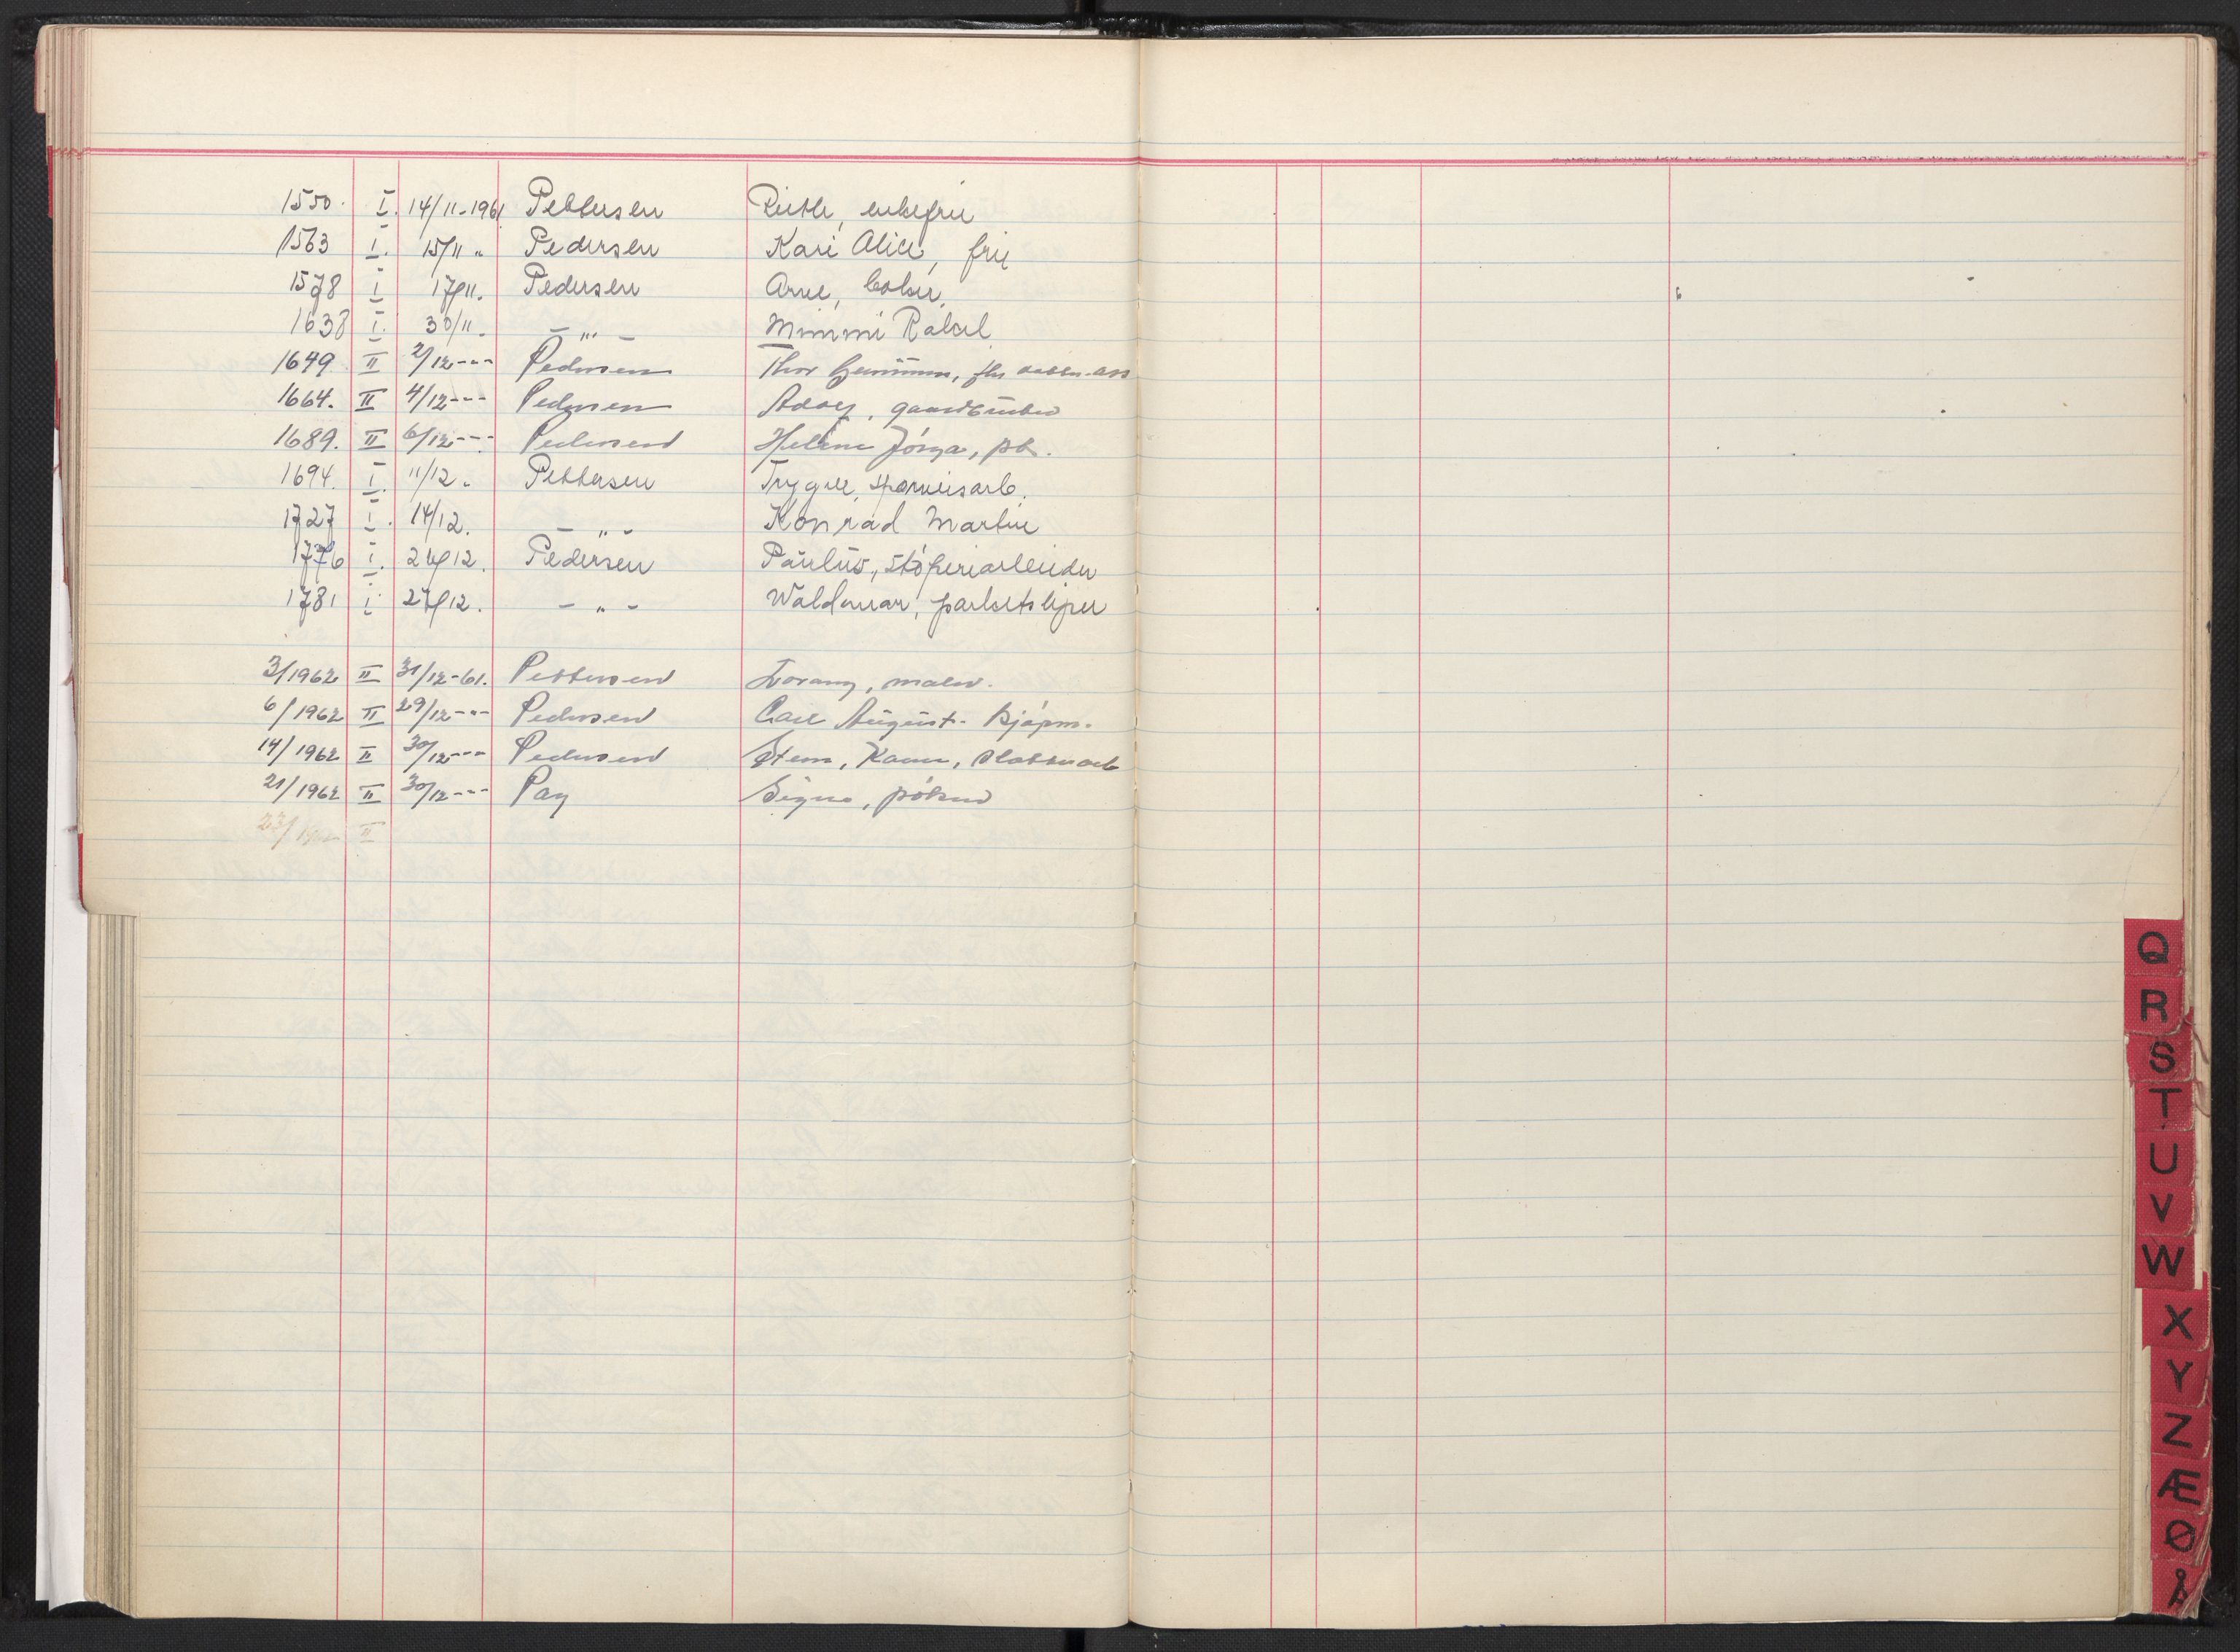 1550. I. 14/11-1961 Pettersen Ruth, enkefru
1563 I. 15/11 " Pedersen Kari Alice, fru
1578 I 17/11. Pedersen Arne, baker.
1638 I. 30/11. - " - Mimmi Rakel
1649 II 2/12-"- Pedersen Thor
1664. II 4/12-"- Pedersen Adolf, gaardbruker
1689. II 6/12-"- Pedersen Helene Jórga, pb.
1694. I. 11/12. Pettersen Trygve, sporveisarb.
1727 I. 14/12. - " - Konrad Martin
1776 I. 24/12. Pedersen Paulus, stóperiarbeider
1781 I 27/12. - " - Waldemar, parketsliper
3/1962 II 31/12-61. Pettersen maler.
6/1962 II 29/12-"- Pedersen Carl August. kjópm.
14/1962 II 30/12-"- Pedersen
21/1962 II 30/12-"- Pay Signe, fróken
23/ II
Q
R
S
T
U
V
W
X
Y
Z
Æ
Ø
Å